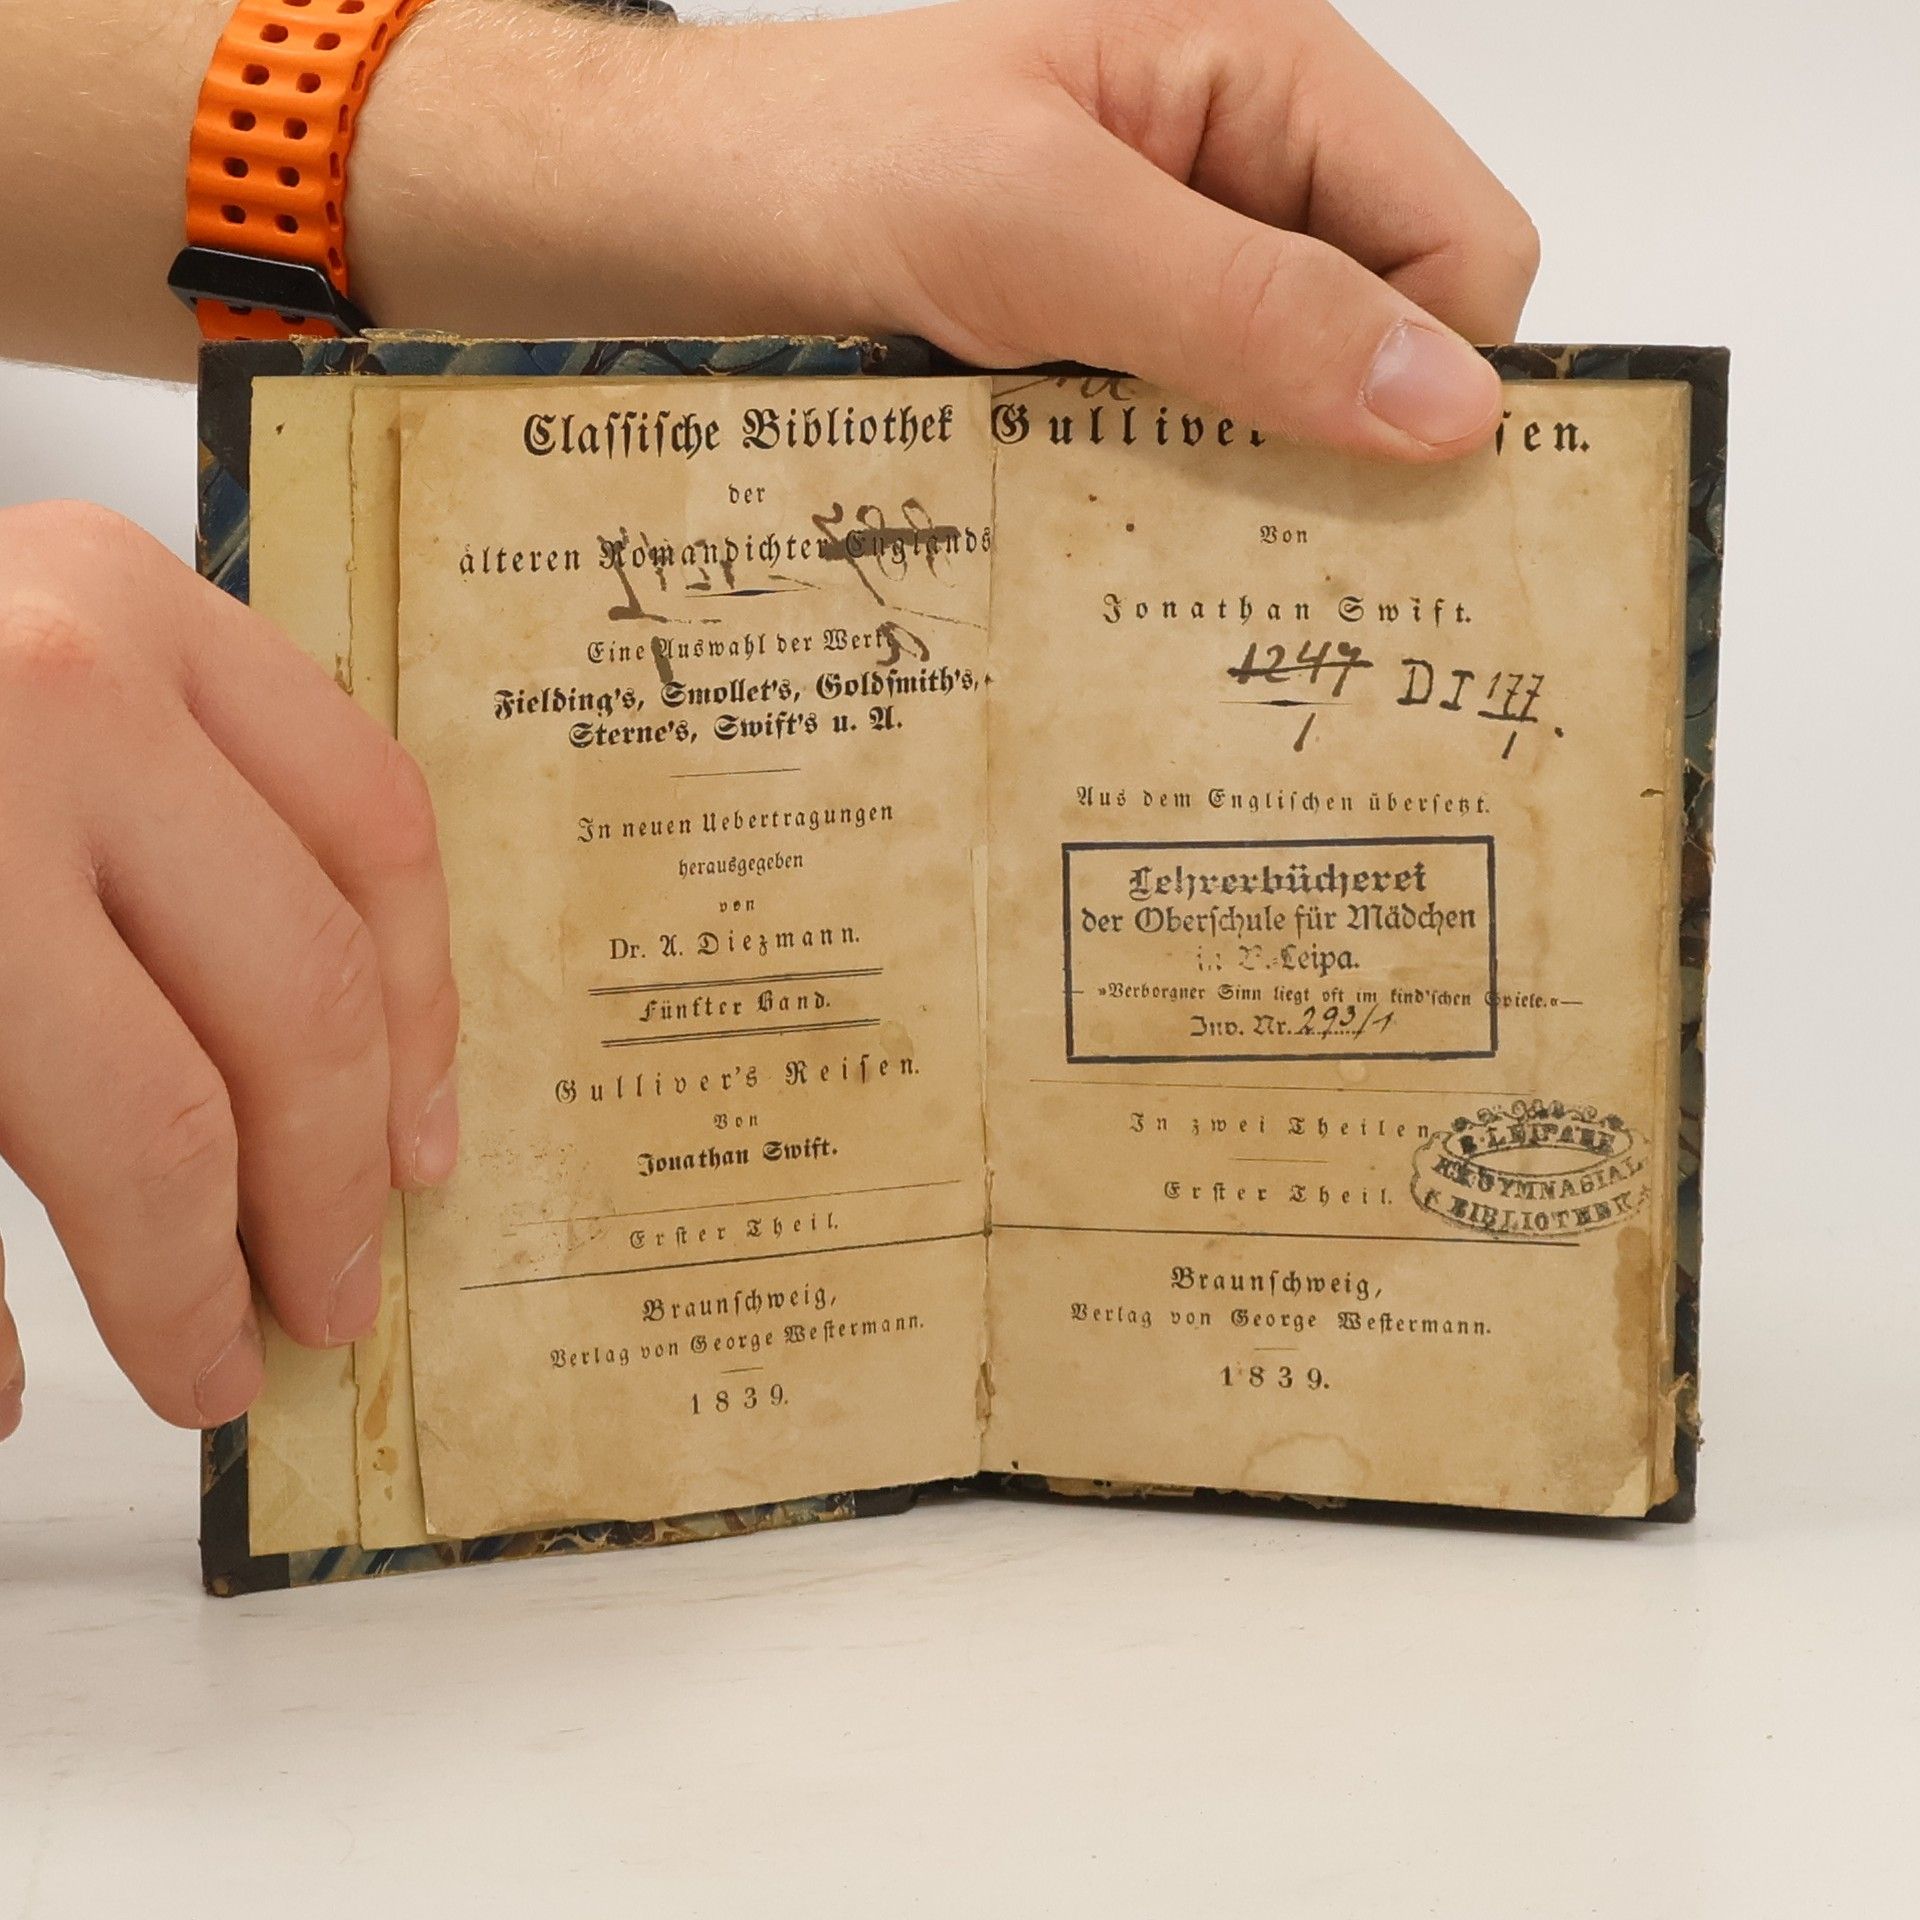 Classische Bibliothek
der
älteren Romandichter Englands
Eine Auswahl der Werke
Fielding's, Smollet's, Goldsmith's,
Sterne's, Swift's u. A.
In neuen Uebertragungen
herausgegeben
von
Dr. A. Diezmann.
Fünfter Band.
Gulliver's Reisen.
Von
Jonathan Swift.
Erster Theil.
Braunschweig,
Verlag von George Westermann.
1839.
Gulliver sen.
Von
Jonathan Swift.
1247 D I 177
1 1
Aus dem Englischen übersetzt.
Lehrerbücherei
der Oberschule für Mädchen
in B.-Leipa.
»Verborgner Sinn liegt oft im kind'schen Spiele.«
Inv. Nr. 293/1
In zwei Theilen
Erster Theil.
B. LEIPAER
K.K. GYMNASIAL
BIBLIOTHEK
Braunschweig,
Verlag von George Westermann.
1839.